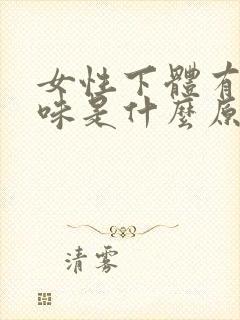 女性下體有
味是什麼原
清雾